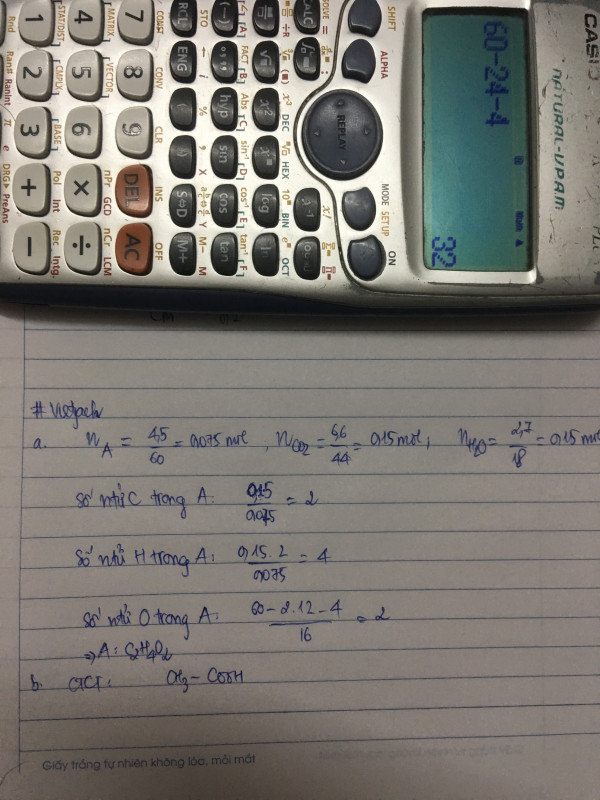 CASIO
NATURAL-V.P.A.M.
60-24-4
32
SHIFT
ALPHA
REPLAY
MODE SETUP
ON
SOLVE =
CALC
x³ DEC
HEX
BIN
OCT
x²
log
ln
(−)
hyp
sin
cos
tan
FACT B
Abs C
sin⁻¹ D
cos⁻¹ E
tan⁻¹ F
STO
RCL
ENG
(
)
S⇔D
M+
i
%
,
M− M
CONST
CONV
CLR
INS
OFF
7
8
9
DEL
AC
MATRIX
VECTOR
nPr GCD
nCr LCM
4
5
6
×
÷
STAT/DIST
CMPLX
BASE
Pol Int
Rec Intg
1
2
3
+
−
Rnd
Ran# RanInt
π e
DRG▸ PreAns
# Vietjack
a. n_A = 4,5/60 = 0,075 mol, n_CO2 = 6,6/44 = 0,15 mol; n_H2O = 2,7/18 = 0,15 mol
Số ntử C trong A: 0,15/0,075 = 2
Số ntử H trong A: 0,15.2/0,075 = 4
Số ntử O trong A: 60-2.12-4/16 = 2
⇒ A: C2H4O2
b. CTCT: CH3 - COOH
Giấy trắng tự nhiên không lóa, mỏi mắt